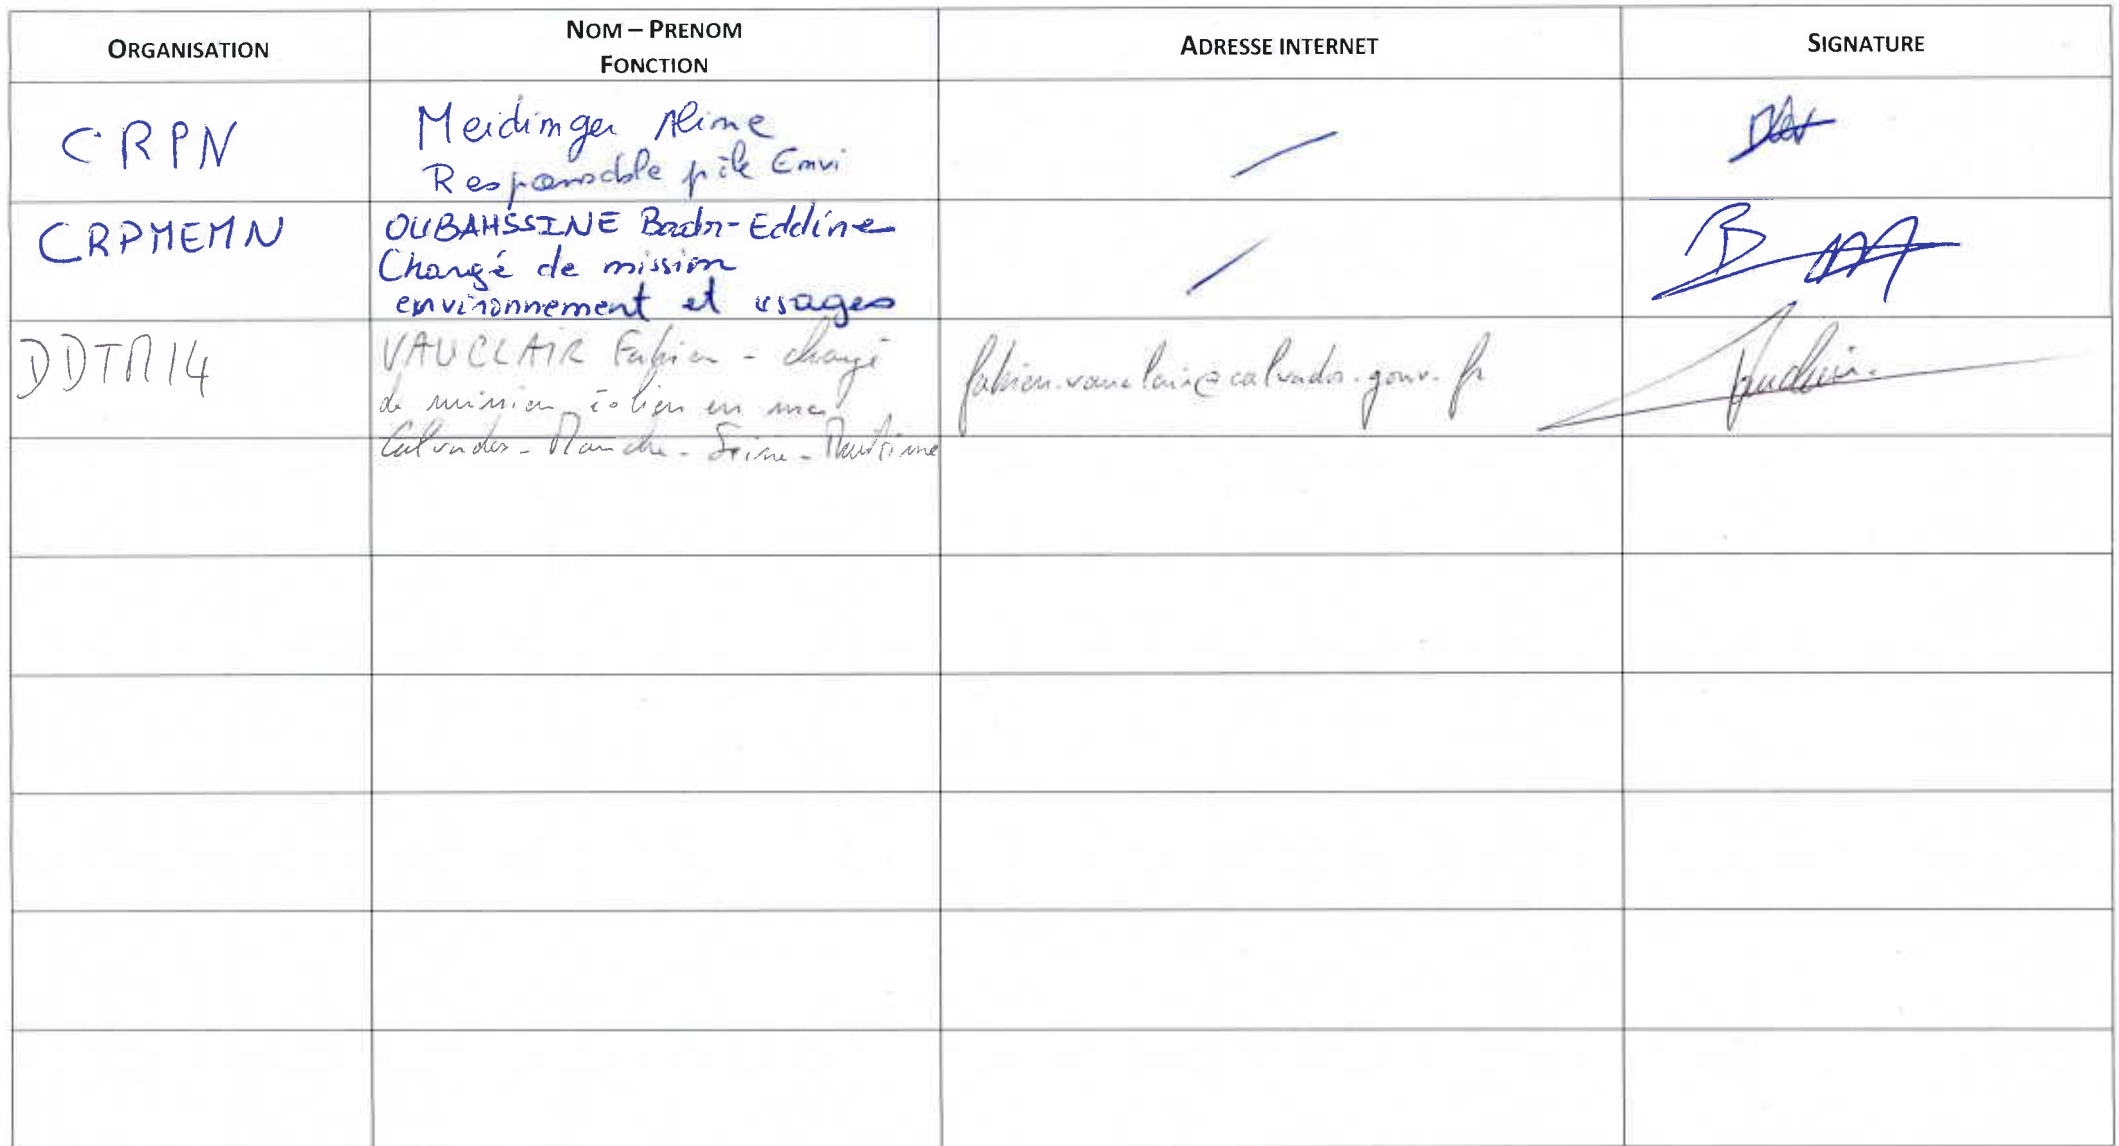 ORGANISATION
NOM – PRENOM
FONCTION
ADRESSE INTERNET
SIGNATURE
CRPN
Meidinger Aline
Responsable pôle Envi
CRPMEMN
OUBAHSSINE Badr-Eddine
Chargé de mission
environnement et usages
DDTM14
VAUCLAIR Fabien - chargé
de mission éolien en mer
Calvados - Manche - Seine-Maritime
fabien.vauclair@calvados.gouv.fr